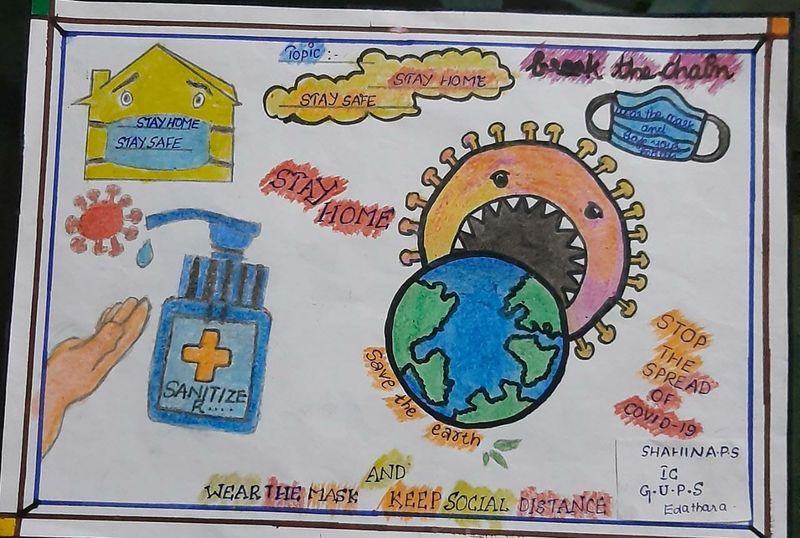 Topic :-
STAY HOME
STAY SAFE
Break the chain
STAY HOME
STAY SAFE
wear the mask
and
STAY
HOME
SANITIZE
R....
Save the earth
STOP
THE
SPREAD
OF
COVID-19
WEAR THE MASK AND KEEP SOCIAL DISTANCE
SHAHINA.P.S
IC
G.U.P.S
Edathara.